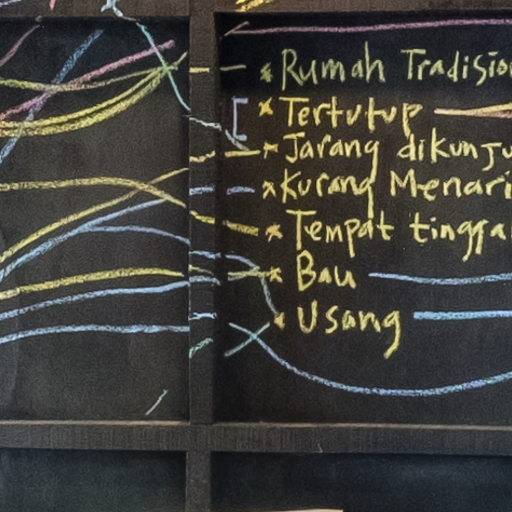 * Rumah Tradision
* Tertutup
* Jarang dikunju
* Kurang Menari
* Tempat tinggal
* Bau
* Usang